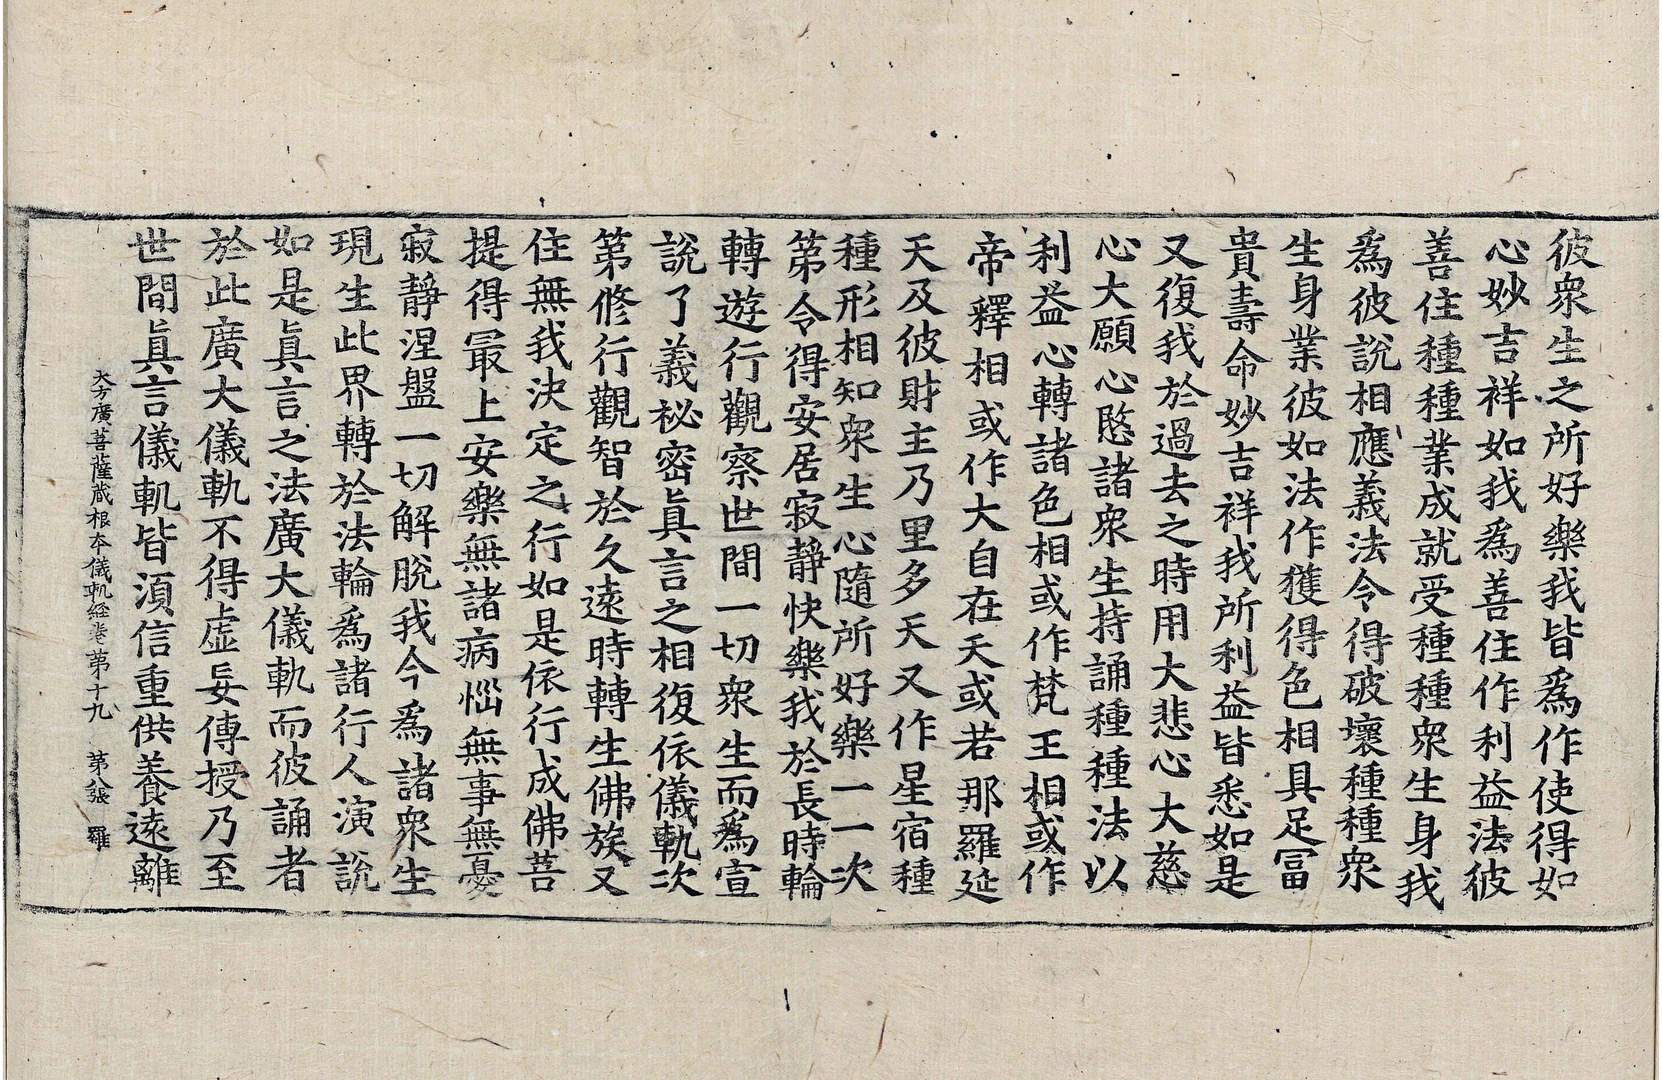 彼衆生之所好樂我皆爲作使得如
心妙吉祥如我爲善住作利益法彼
善住種種業成就受種種衆生身我
爲彼說相應義法令得破壞種種衆
生身業彼如法作獲得色相具足冨
貴壽命妙吉祥我所利益皆悉如是
又復我於過去之時用大悲心大慈
心大願心愍諸衆生持誦種種法以
利益心轉諸色相或作梵王相或作
帝釋相或作大自在天或若那羅延
天及彼財主乃里多天又作星宿種
種形相知衆生心隨所好樂一一次
第令得安居寂靜快樂我於長時輪
轉遊行觀察世間一切衆生而爲宣
說了義秘密眞言之相復依儀軌次
第修行觀智於久遠時轉生佛族又
住無我決定之行如是依行成佛菩
提得最上安樂無諸病惱無事無憂
寂靜涅盤一切解脫我今爲諸衆生
現生此界轉於法輪爲諸行人演說
如是眞言之法廣大儀軌而彼誦者
於此廣大儀軌不得虛妄傳授乃至
世間眞言儀軌皆湏信重供養遠離
大方廣菩薩蔵根本儀軌經卷第十九 第八張 羅